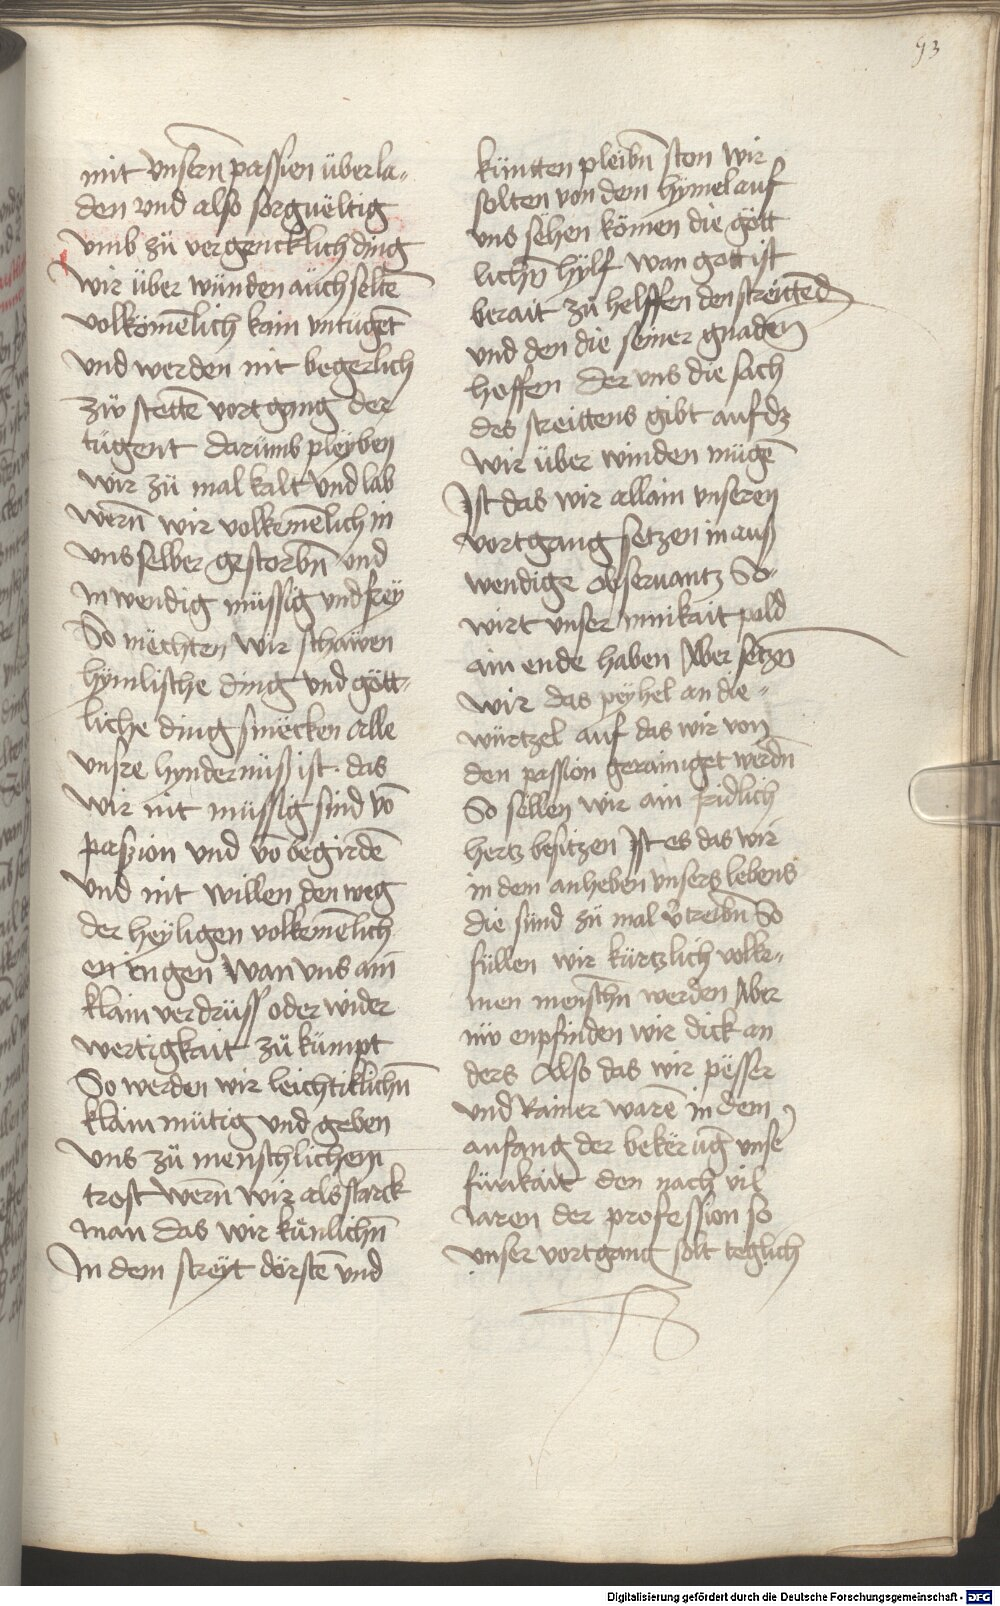 93
mit vnsern̄ passien über la-
den vnd also sorguëltig
vmb zü vergencklich ding
wir über wünden aüch selten̄
volkömēlich kain vntügēt
vnd werden nit begerlich
züo stetten̄ vortgang der
tügent darümb pleyben
wir zü mal kalt vnd lab
wern̄ wir volkemēlich in
vns selber gestorbn̄ vnd
inwendig müssig vnd frey
So mëchten wir schawen
hymlische ding vnd gött-
liche ding smëcken alle
vnsre hyndernüß ist das
wir nit müssig sind vō
paszion vnd vō begirdē
vnd nit willen den weg
der heyligen volkemēlich
en ingen wan vns ain
klain verdrüss oder wider
wertigkait zü kümpt
So werden wir leichtiklichn̄
klain mütig vnd geben
vns zü menschlichem
trost wern̄ wir als starck
man das wir künlichn̄
In dem streyt dörstē vnd
küntten pleibn̄ sten wir
solten von dem hymel auf
vns sëhen kömen die gött
lichn̄ hylf wan gott ist
berait zü helffen den streittēd
vnd den die seiner gnaden
hoffen der vns die sach
des streittens gibt auf dz
wir über winden mügē
Ist das wir allain vnseren
vortgang setzen in auß
wendige obseruantz So
wirt vnser innikait pald
ain ende haben Aber setzn̄
wir das peyhel an die
würtzel auf das wir von
den passion gerainiget werdn̄
So sëllen wir ain fridlich
hertz besitzen Ist es das wir
in dem anheben vnsers lebens
die sünd zü mal v̄treibn̄ So
süllen wir kürtzlich volke-
men menschn̄ werden Aber
nüo enpfinden wir dick an
ders Also das wir pësser
vnd Rainer warē in dem
anfang der bekërūg vnser
fürikait den nach vil
iaren der profession so
vnser vortgang solt teglich
Digitalisierung gefördert durch die Deutsche Forschungsgemeinschaft - DFG